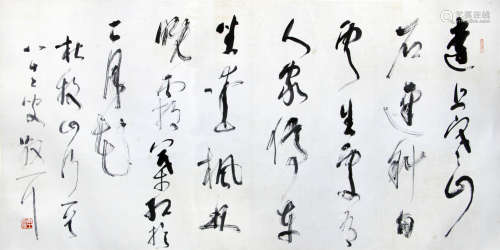 遠上寒山
石逕斜白
雲生處有
人家停車
坐愛楓林
晚霜葉紅於
二月花
杜牧山行
叟散耳